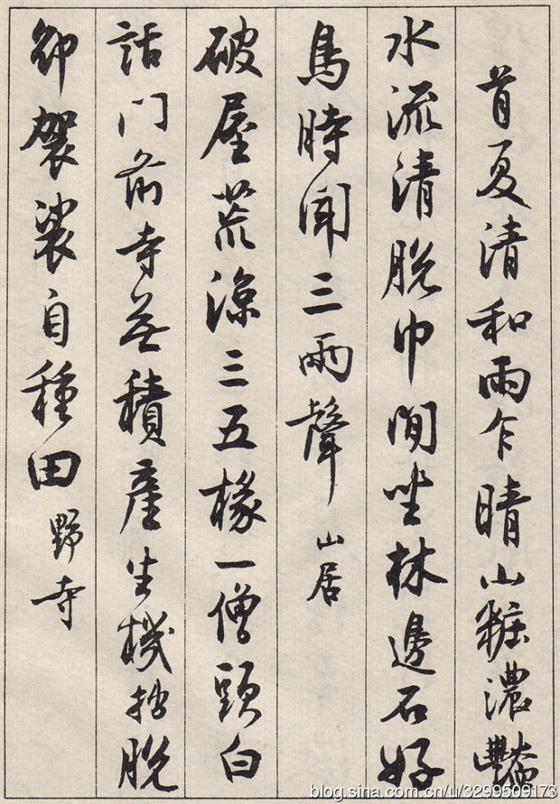 首夏清和雨乍晴山粧濃豔
水流清脫巾閒坐林邊石好
鳥時聞三兩聲 山居
破屋荒涼三五椽一僧頭白
話门前寺無積產生機拙脫
卻袈裟自種田 野寺
blog.sina.com.cn/u/3299509173